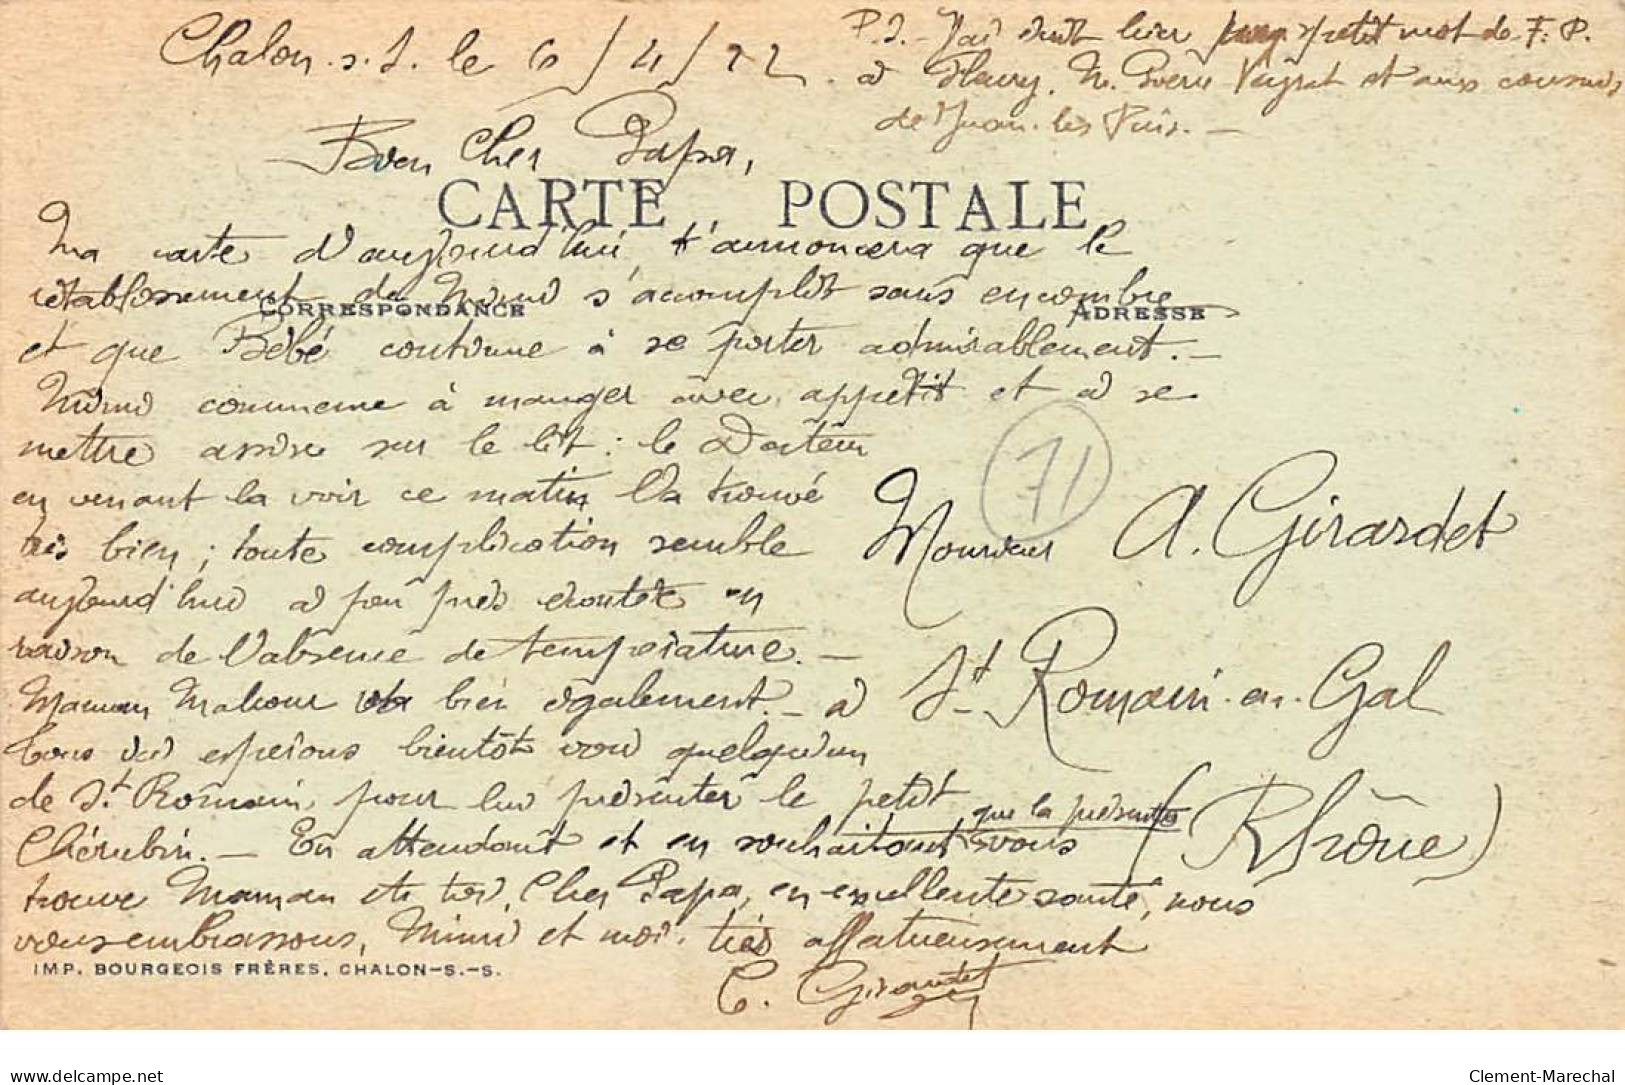 Chalon s. S. le 6/4/22
P.S. - J'ai écrit hier petit mot de F. P.
à Fleury, Me Veyrat et aux cousins
de Juan-les-Pins. -
Bien Cher Papa,
CARTE POSTALE
Ma carte d'aujourd'hui t'annoncera que le
rétablissement de Mimi s'accomplit sans encombre
CORRESPONDANCE
ADRESSE
et que Bébé continue à se porter admirablement. -
Mimi commence à manger avec appétit et à se
mettre assise sur le lit : le Docteur
en venant la voir ce matin l'a trouvé
très bien ; toute complication semble
aujourd'hui à peu près écartée en
raison de l'absence de température. -
Maman va bien également. - à
tous deux espérons bientôt voir quelqu'un
de St Romain pour lui présenter le petit
Chérubin. - En attendant et en souhaitant que la présente vous
trouve Maman et toi, Cher Papa, en excellente santé, nous
vous embrassons, Mimi et moi, très affectueusement
C. Girardet
71
Monsieur A. Girardet
à St Romain-en-Gal
(Rhône)
IMP. BOURGEOIS FRÈRES, CHALON-S.-S.
www.delcampe.net
Clement-Marechal